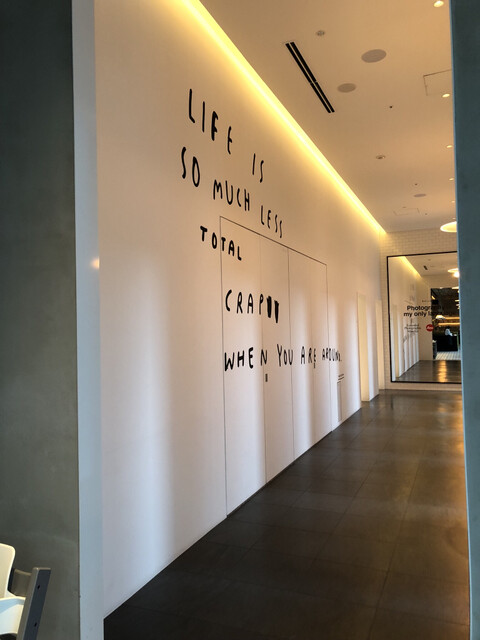 LIFE IS
SO MUCH LESS
TOTAL
CRAP
WHEN YOU ARE AROUND.
my only